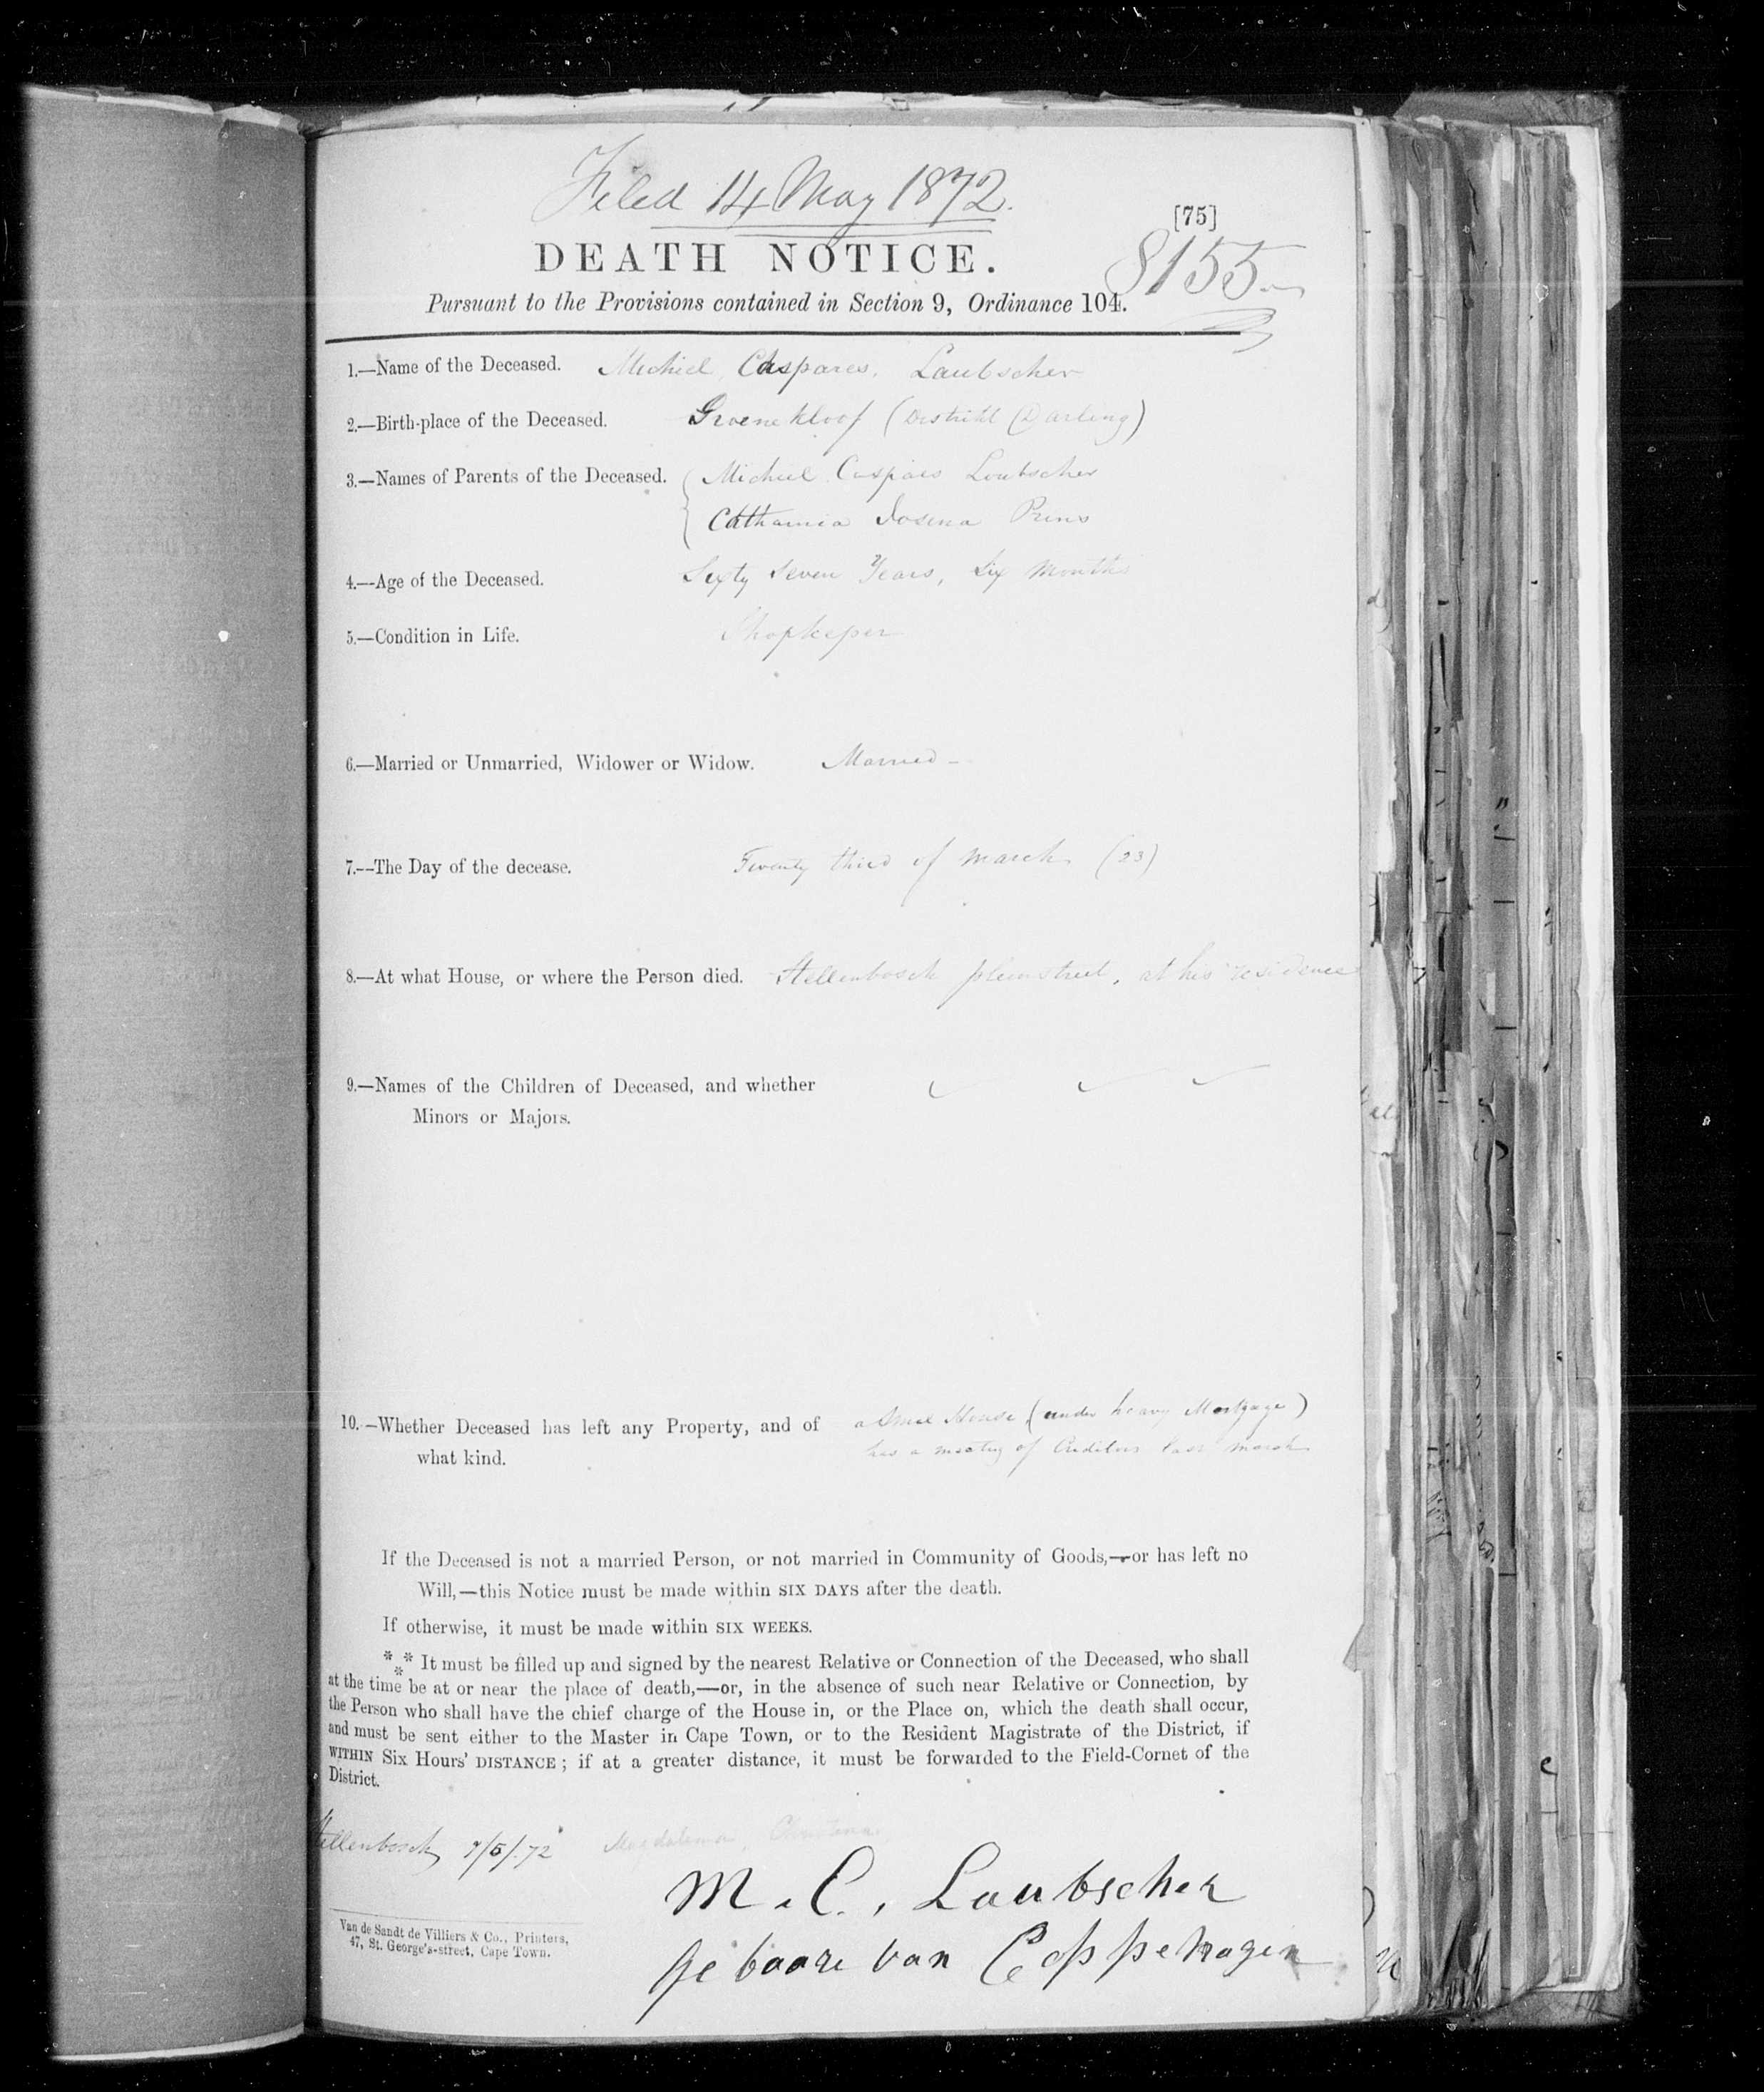 Filed 14 May 1872.
[75]
8155
DEATH NOTICE.
Pursuant to the Provisions contained in Section 9, Ordinance 104.
1.—Name of the Deceased. Michiel Caspares. Laubscher
2.—Birth-place of the Deceased. Groenekloof (Distrikt Darling)
3.—Names of Parents of the Deceased. Michiel Caspars Loubscher
Catharina Josina Prins
4.—Age of the Deceased. Sixty Seven Years, Six Months
5.—Condition in Life. Shopkeeper
6.—Married or Unmarried, Widower or Widow. Married –
7.—The Day of the decease. Twenty third of March (23)
8.—At what House, or where the Person died. Stellenbosch pleinstreet, at his residence
9.—Names of the Children of Deceased, and whether
Minors or Majors.
10.—Whether Deceased has left any Property, and of a Smal House (under heavy Mortgage)
what kind. has a meeting of Creditors March
If the Deceased is not a married Person, or not married in Community of Goods,—or has left no
Will,—this Notice must be made within SIX DAYS after the death.
If otherwise, it must be made within SIX WEEKS.
*** It must be filled up and signed by the nearest Relative or Connection of the Deceased, who shall
at the time be at or near the place of death,—or, in the absence of such near Relative or Connection, by
the Person who shall have the chief charge of the House in, or the Place on, which the death shall occur,
and must be sent either to the Master in Cape Town, or to the Resident Magistrate of the District, if
WITHIN Six Hours' DISTANCE; if at a greater distance, it must be forwarded to the Field-Cornet of the
District.
Stellenbosch 7/5/72 Magdalena, Christina
M. C., Laubscher
geboore van Coppenhagen
Van de Sandt de Villiers & Co., Printers,
47, St. George's-street, Cape Town.